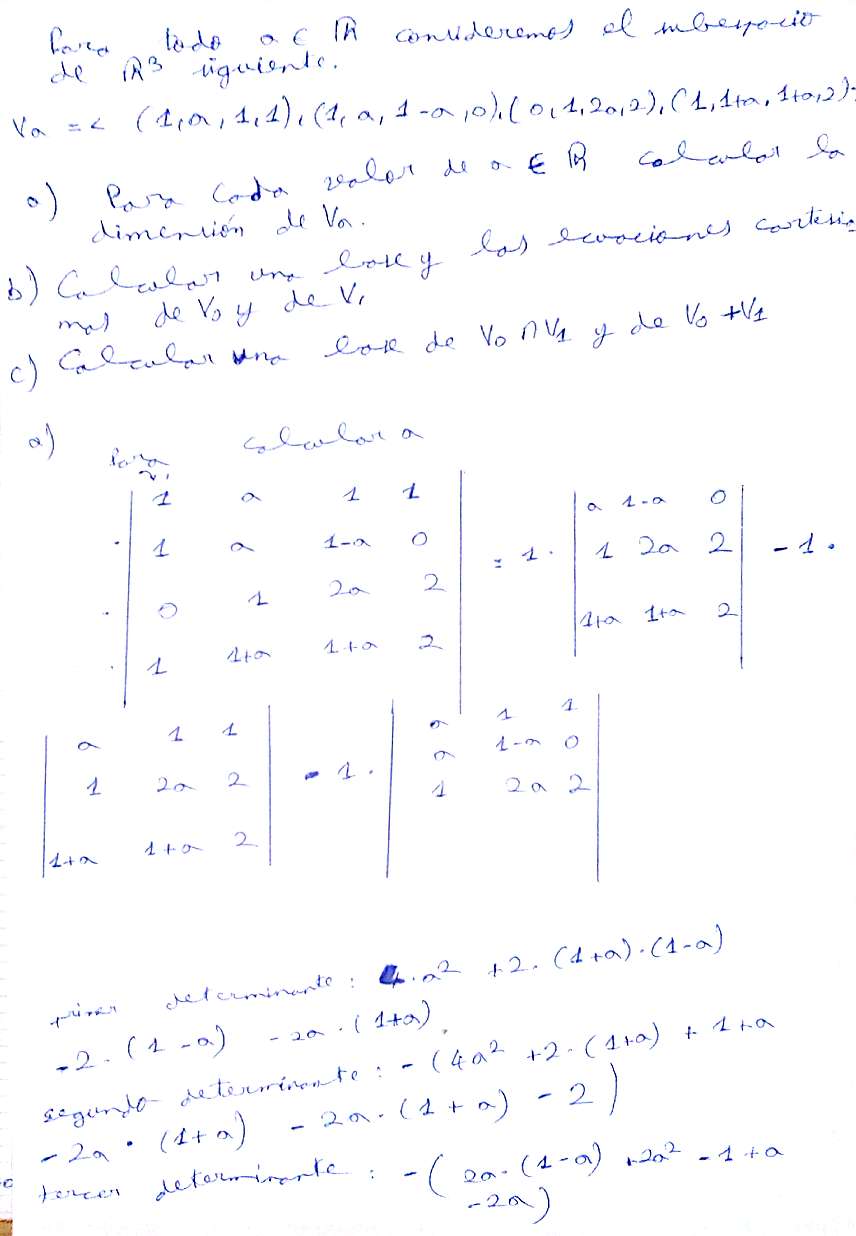 Para todo a ∈ ℝ consideremos el subespacio
de ℝ³ siguiente.
Va = < (1,a,1,1),(1,a,1-a,0),(0,1,2a,2),(1,1+a,1+a,2)>
a) Para cada valor de a ∈ ℝ calcular la
dimensión de Va.
b) Calcular una base y las ecuaciones cartesia
nas de V₀ y de V₁
c) Calcular una base de V₀ ∩ V₁ y de V₀ + V₁
a) Para calcular a
| 1 a 1 1 |
| 1 a 1-a 0 | = 1 · | a 1-a 0 |
| 0 1 2a 2 | | 1 2a 2 | - 1 ·
| 1 1+a 1+a 2 | | 1+a 1+a 2 |
| a 1 1 | - 1 · | a 1 1 |
| 1 2a 2 | | a 1-a 0 |
| 1+a 1+a 2 | | 1 2a 2 |
primer determinante : 4·a² + 2·(1+a)·(1-a)
-2·(1-a) - 2a·(1+a)
segundo determinante : - (4a² + 2·(1+a) + 1+a
-2a·(1+a) - 2a·(1+a) - 2)
tercer determinante : - (2a·(1-a) + 2a² - 1+a
-2a)